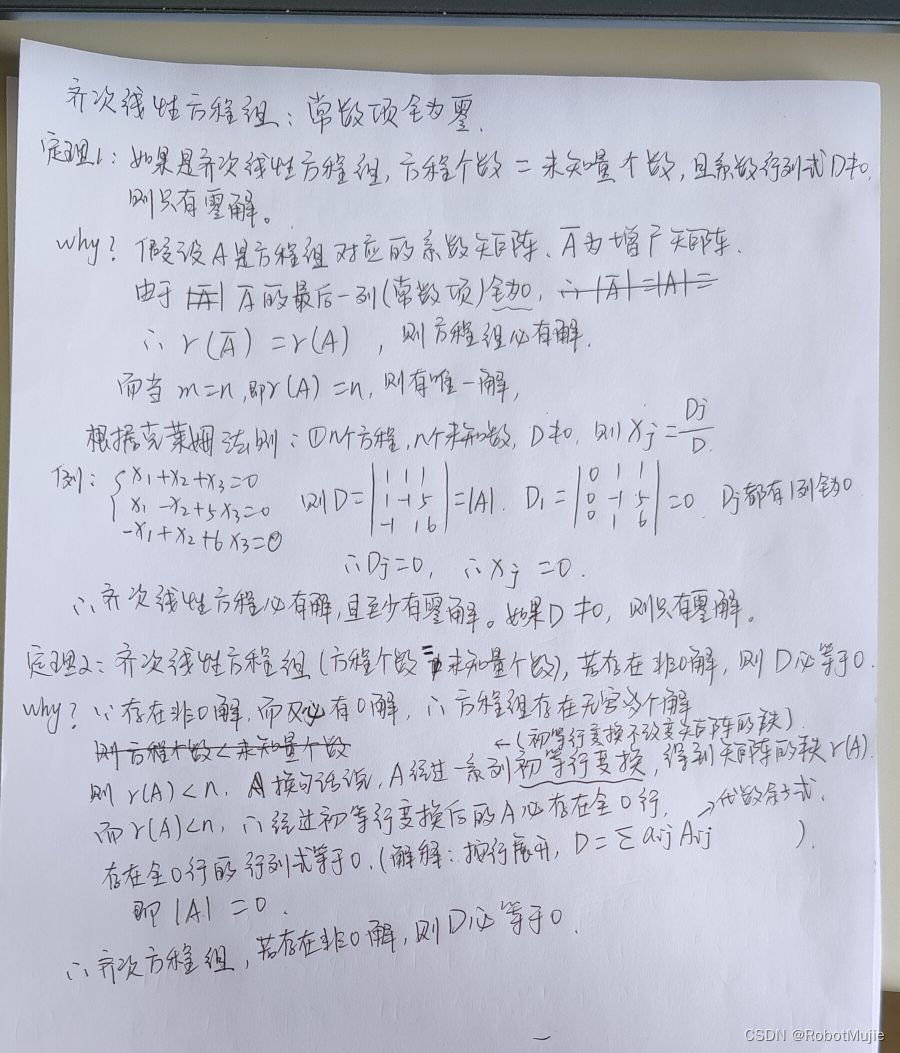 齐次线性方程组：常数项全为零.
定理1：如果是齐次线性方程组,方程个数=未知量个数,且系数行列式D≠0,
则只有零解。
why? 假设A是方程组对应的系数矩阵、A̅为增广矩阵.
由于 |A̅| A̅的最后一列(常数项)全为0, ∴|A̅|=|A|=
∴ r(A̅)=r(A) ,则方程组必有解.
而当 m=n,即r(A)=n,则有唯一解,
根据克莱姆法则：①n个方程,n个未知数, D≠0, 则 xj = Dj/D.
例： { x1+x2+x3=0 则D= | 1 1 1 | =|A|. D1= | 0 1 1 | =0 Dj都有1列全为0
x1-x2+5x3=0 | 1 -1 5 | | 0 -1 5 |
-x1+x2+6x3=0 | -1 1 6 | | 0 1 6 |
∴Dj=0, ∴xj=0.
∴齐次线性方程必有解,且至少有零解。如果D≠0, 则只有零解。
定理2：齐次线性方程组(方程个数=未知量个数),若存在非0解,则D必等于0.
why? ∵存在非0解,而又必有0解, ∴方程组存在无穷多个解
则方程个数<未知量个数 ←(初等行变换不改变矩阵的秩).
则 r(A)<n. 换句话说, A经过一系列初等行变换,得到矩阵的秩r(A).
而r(A)<n, ∴经过初等行变换后的A必存在全0行, →代数余子式.
存在全0行的行列式等于0.(解释：按行展开, D=Σaij Aij ).
即 |A|=0.
∴齐次方程组,若存在非0解,则D必等于0.
CSDN @RobotMujie